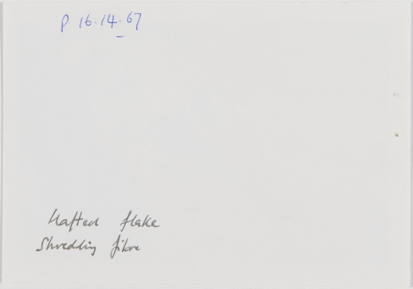 P 16.14.67
Hafted flake
Shredding fibre